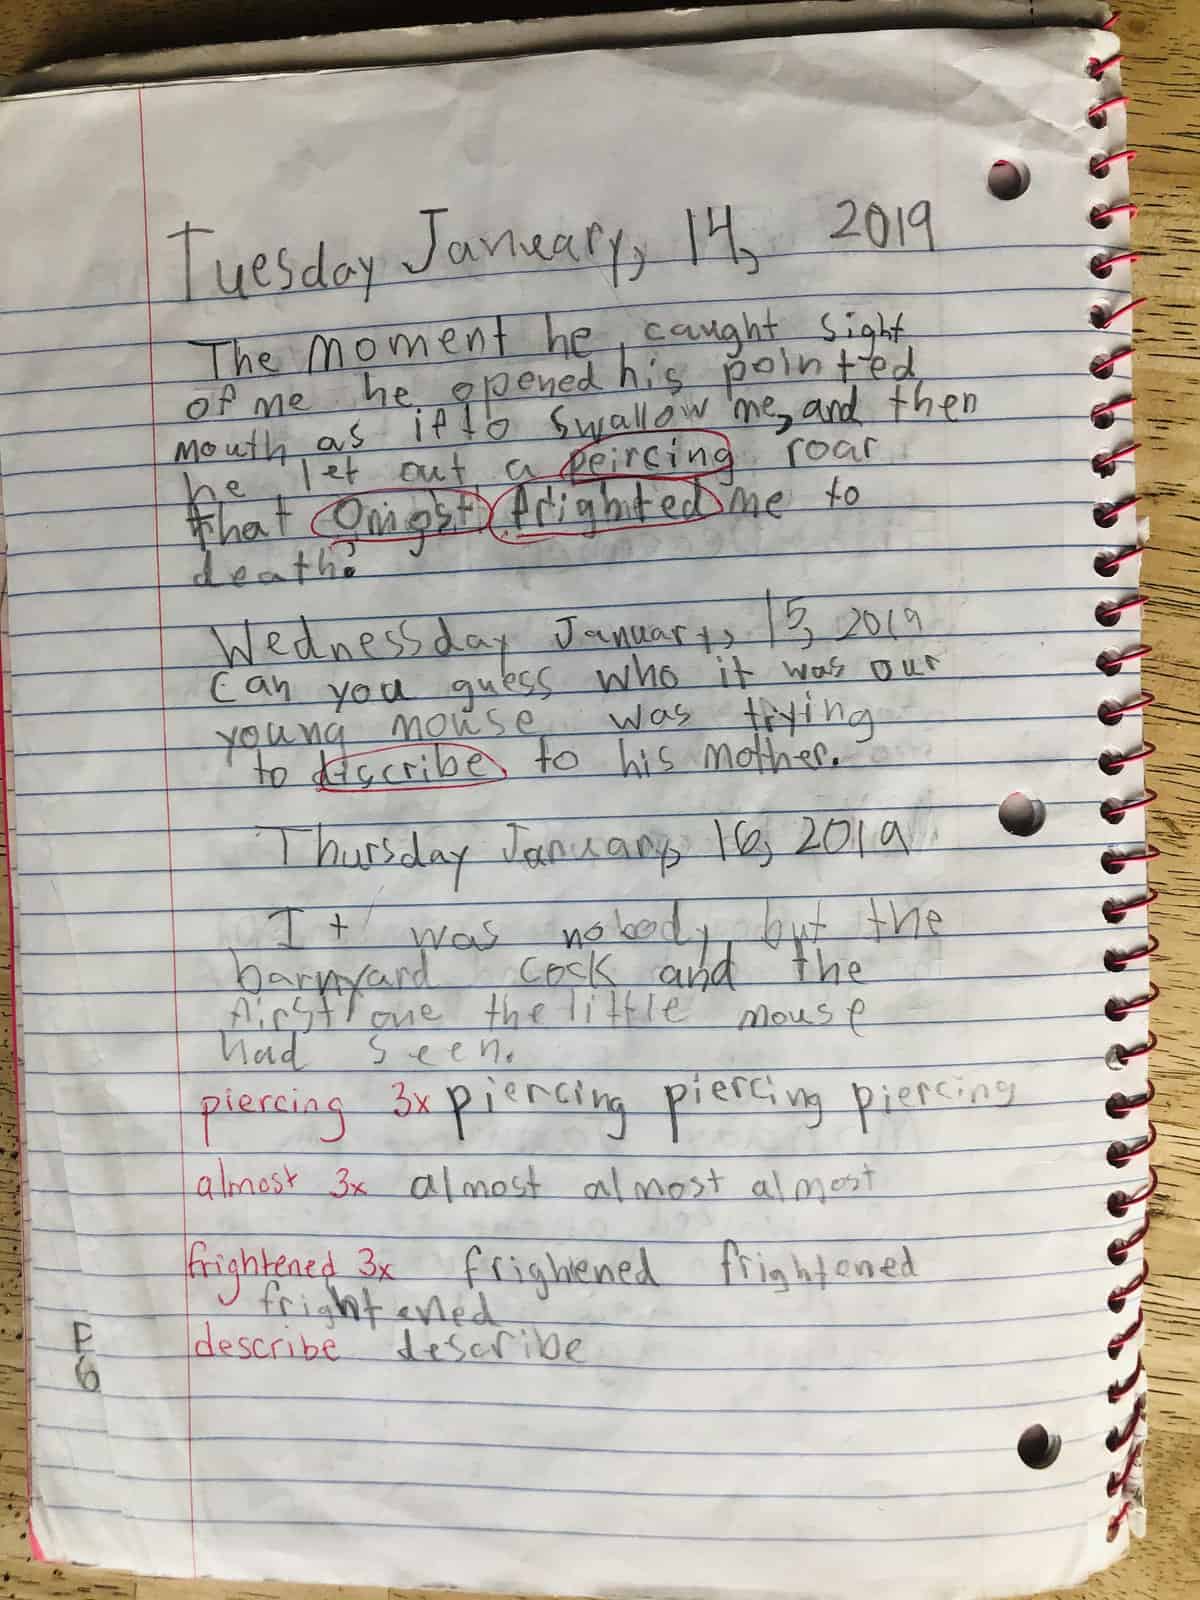 Tuesday January, 14, 2019
The moment he caught sight
of me he opened his pointed
mouth as if to swallow me, and then
he let out a peircing roar
that frighted me to
death.
Wednessday January, 15, 2019
Can you guess who it was our
young mouse was trying
to discribe to his mother.
Thursday January, 16, 2019
It was nobody but the
barnyard cock and the
first one the little mouse
had seen.
piercing 3x piercing piercing piercing
almost 3x almost almost almost
frightened 3x frighened frightened
frightened
describe describe
P
6